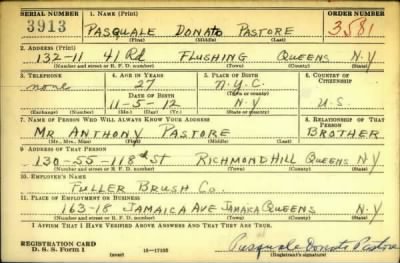 SERIAL NUMBER 1. NAME (Print) ORDER NUMBER
3913 PASQUALE DONATO PASTORE 3581
(First) (Middle) (Last)
2. ADDRESS (Print)
132-11 41 Rd FLUSHING QUEENS N.Y
(Number and street or R. F. D. number) (Town) (County) (State)
3. TELEPHONE 4. AGE IN YEARS 5. PLACE OF BIRTH 6. COUNTRY OF CITIZENSHIP
none 27 N.Y.C.
DATE OF BIRTH (Town or county)
11-5-12 N.Y U.S.
(Exchange) (Number) (Mo.) (Day) (Yr.) (State or country)
7. NAME OF PERSON WHO WILL ALWAYS KNOW YOUR ADDRESS 8. RELATIONSHIP OF THAT PERSON
MR ANTHONY PASTORE BROTHER
(Mr., Mrs., Miss) (First) (Middle) (Last)
9. ADDRESS OF THAT PERSON
130-55-118th St RICHMOND HILL QUEENS N.Y
(Number and street or R. F. D. number) (Town) (County) (State)
10. EMPLOYER'S NAME
FULLER BRUSH CO.
11. PLACE OF EMPLOYMENT OR BUSINESS
163-18 JAMAICA AVE JAMAICA QUEENS N.Y
(Number and street or R. F. D. number) (Town) (County) (State)
I AFFIRM THAT I HAVE VERIFIED ABOVE ANSWERS AND THAT THEY ARE TRUE.
REGISTRATION CARD
D. S. S. Form 1 (over) 16-17105 Pasquale Donato Pastore
(Registrant's signature)